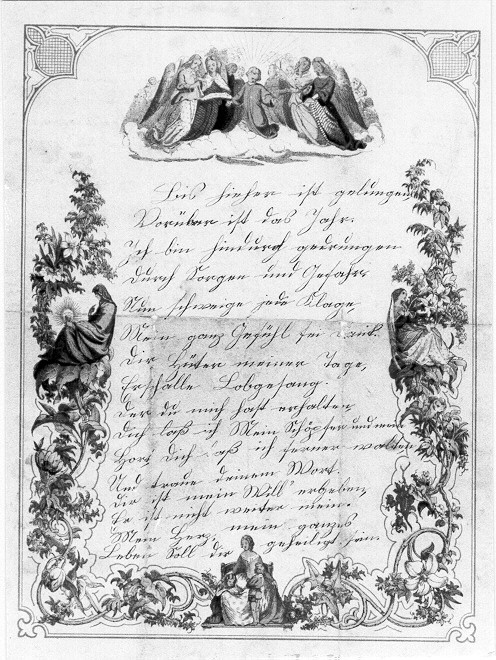 Bis hieher ist gelungen
Vorüber ist das Jahr.
Ich bin hindurch gedrungen
Durch Sorgen und Gefahr
Nun schweige jede Klage,
Mein ganz Gefühl sei Dank.
Dir Hüter meiner Tage,
Erschalle Lobgesang.
Der du mich hast erhalten
Dich laß ich Mein Schöpfer und mein
Hort Dich laß ich ferner walten
Und traue deinem Wort
Dir ist mein Will ergeben,
Er ist nicht weiter mein.
Mein Herz, mein ganzes
Leben Soll dir geheiligt sein.